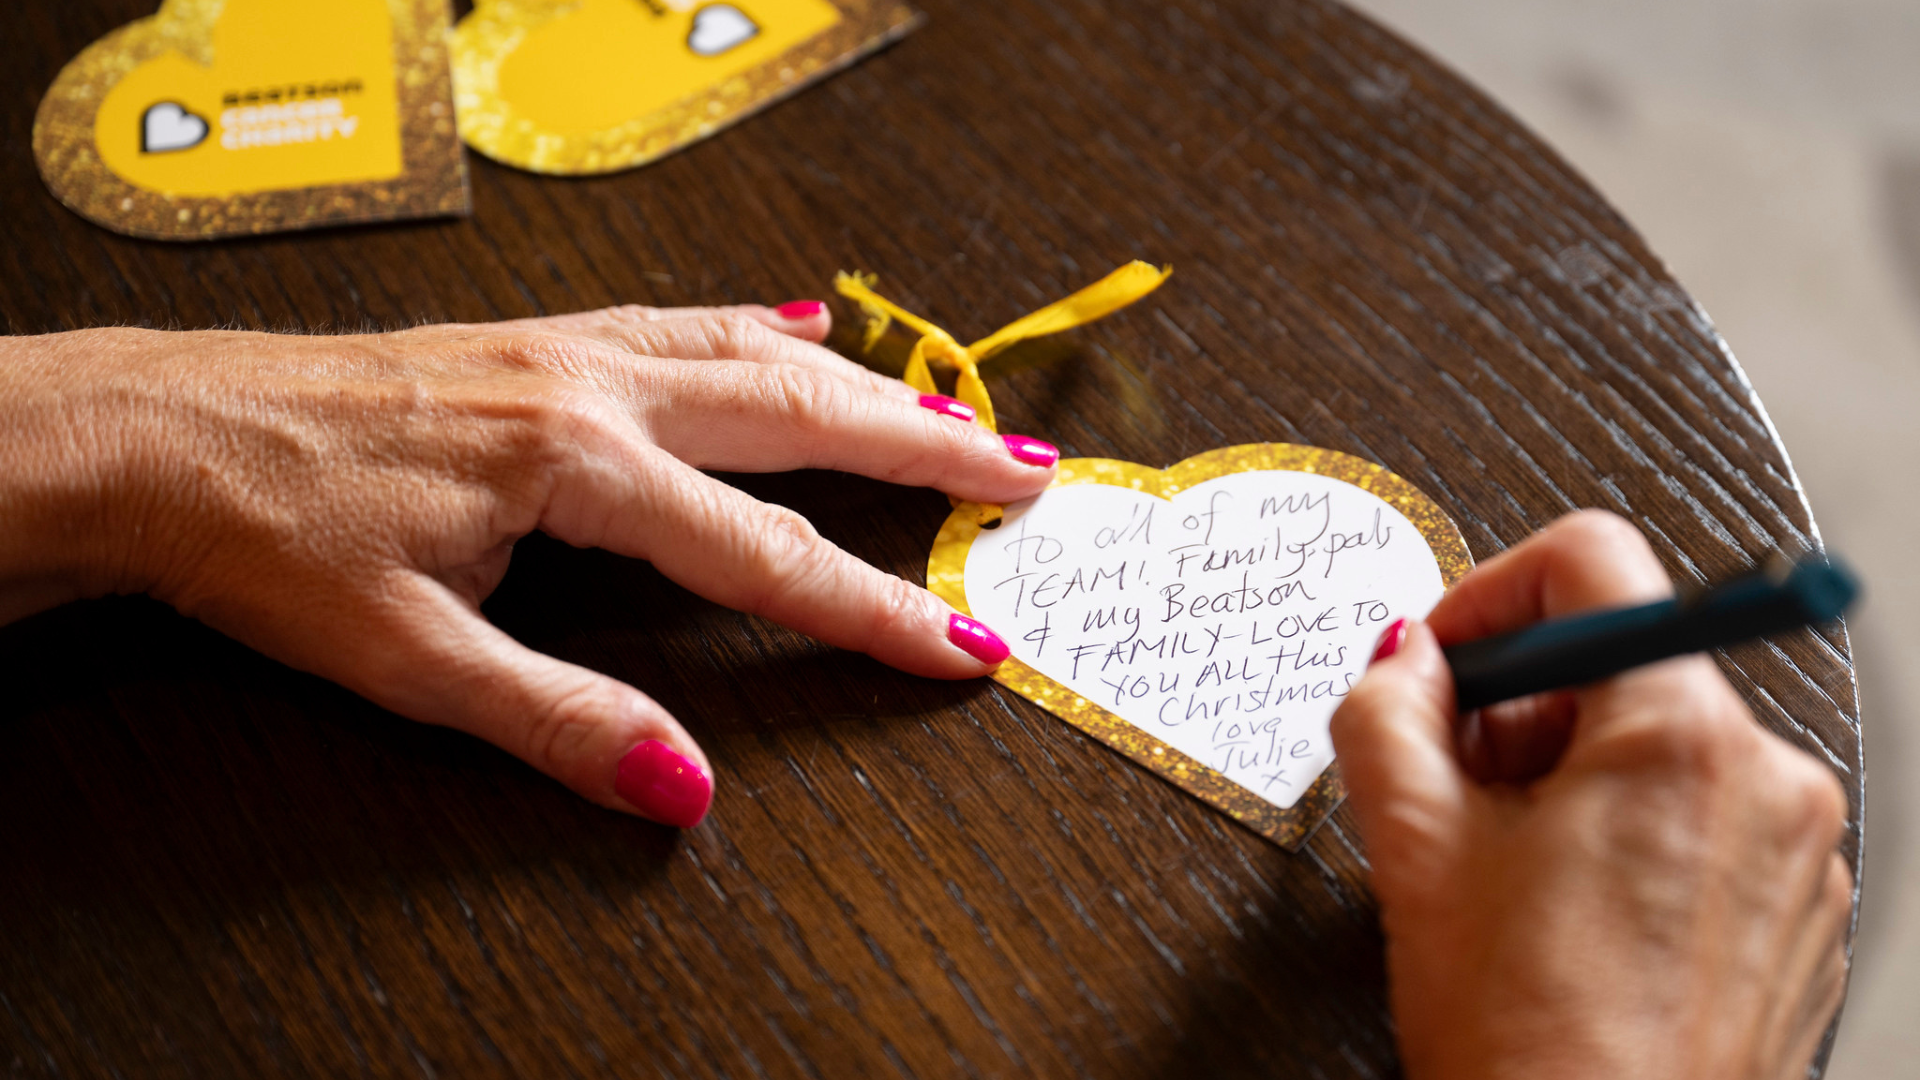 BEATSON
CANCER
CHARITY
to all of my
TEAM! Family, pals
& my Beatson
FAMILY - LOVE TO
YOU ALL this
Christmas
love
Julie
x